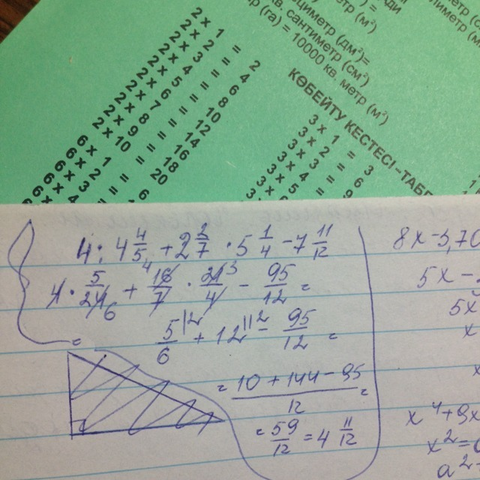 циметр (дм²)=
кв, сантиметр (см²)
р (га) = 10000 кв, метр (м²)
2 × 1 = 2
2 × 2 = 4
2 × 3 = 6
2 × 4 = 8
2 × 5 = 10
2 × 6 = 12
2 × 7 = 14
2 × 8 = 16
2 × 9 = 18
2 × 10 = 20
6 × 1 = 6
6 × 2 =
6 × 3
6 × 4
КӨБЕЙТУ КЕСТЕСІ –ТАБЛ
3 × 1 = 3
3 × 2 = 6
3 × 3 = 9
3 × 4 =
3 × 5 =
4 : 4 4/5 + 2 2/7 · 5 1/4 − 7 11/12
4 · 5/24 6 + 4 16/7 · 21 3/4 − 95/12 =
5/6 |2 + 12 |12 − 95/12 =
= 10 + 144 − 95/12 =
= 59/12 = 4 11/12
8x − 5,70
5x −
5x
x
x
x⁴ + 9x
x² = a
a² −